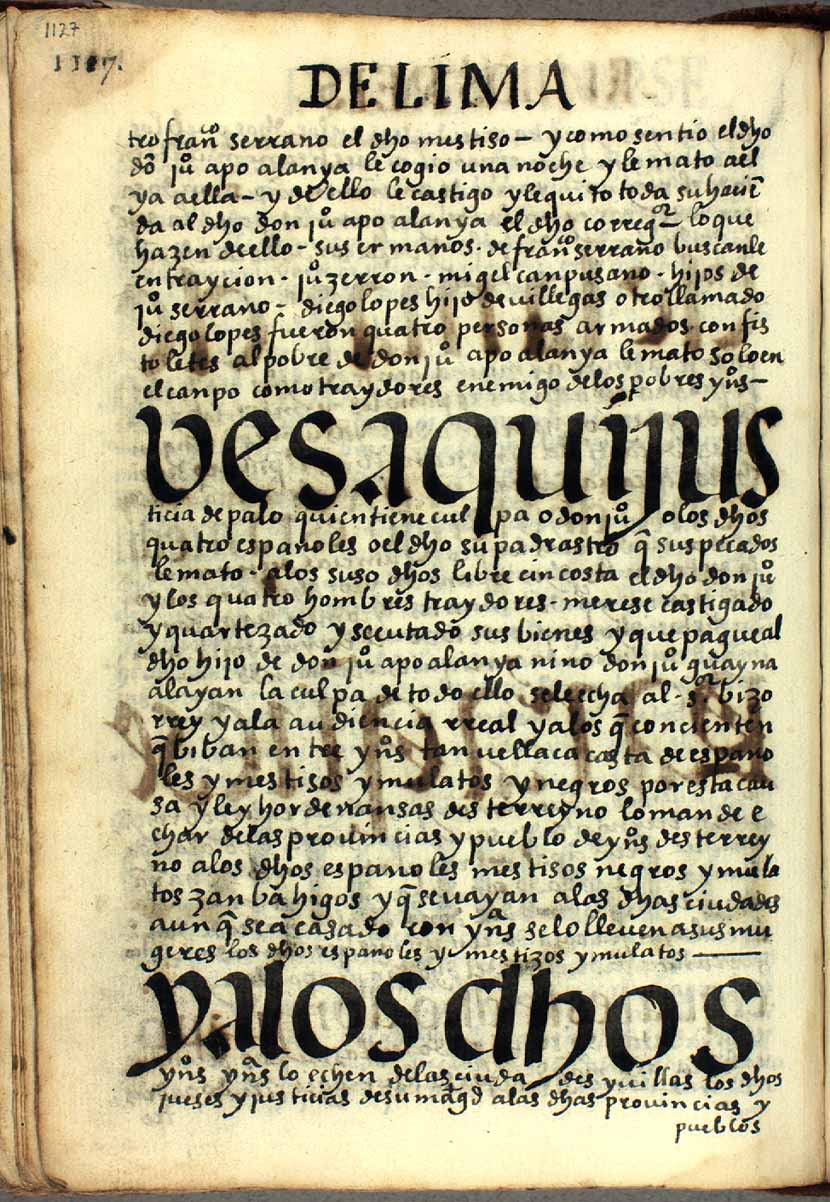 1127
1117.
DE LIMA
tro franº serrano el dho mestiso — y como sentio el dho
dõ juº apo alanya le cogio una noche y le mato a el
ya aella – y de ello le castigo y le quito toda su hazien
da al dho don juº apo alanya el dho corregor – lo que
hazen de ello – sus ermanos. de franº serrano buscanle
en traycion – juº zerron – migel canpusano – hijos de
juº serrano – diego lopes hijo de villegas otro llamado
diego lopes fueron quatro personas armados con pis
toletes al pobre de don juº apo alanya le mato solo en
el canpo como traydores enemigo de los pobres ynºs —
ves aqui jus
ticia de palo quien tiene cul pa o don juº o los dhos
quatro españoles o el dho su padrastro q̃ sus pecados
le mato – a los suso dhos libre cin costa el dho don juº
y los quatro hombres traydores – merese castigado
y quartezado y secutado sus bienes y que pague al
dho hijo de don juº apo alanya nino don juº guayna
alayan la culpa de todo ello se le echa al – sor bizo
rrey y a la audiencia rreal y a los q̃ concienten
q̃ biban entre ynºs tan vellaca casta de espano
les y mestisos y mulatos y negros por esta cau
sa y ley hordenansas deste rreyno lo mande e
char de las provincias y pueblo de ynºs deste rrey
no a los dhos espanoles mestisos negros y mula
tos zanbahigos y q̃ se vayan a las dhas ciudades
aunq̃ sea casado con ynªs se lo lleven a sus mu
geres los dhos espanoles y mestizos y mulatos —
y a los dhos
ynºs ynªs lo echen de las ciuda des y villas los dhos
jueses y justicias de su magd a las dhas provincias y
pueblos